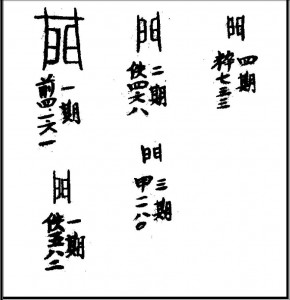 門
一期
前四·一六·一
門
一期
佚五八二
門
二期
佚四六八
門
三期
甲二八〇
門
四期
粹七三三